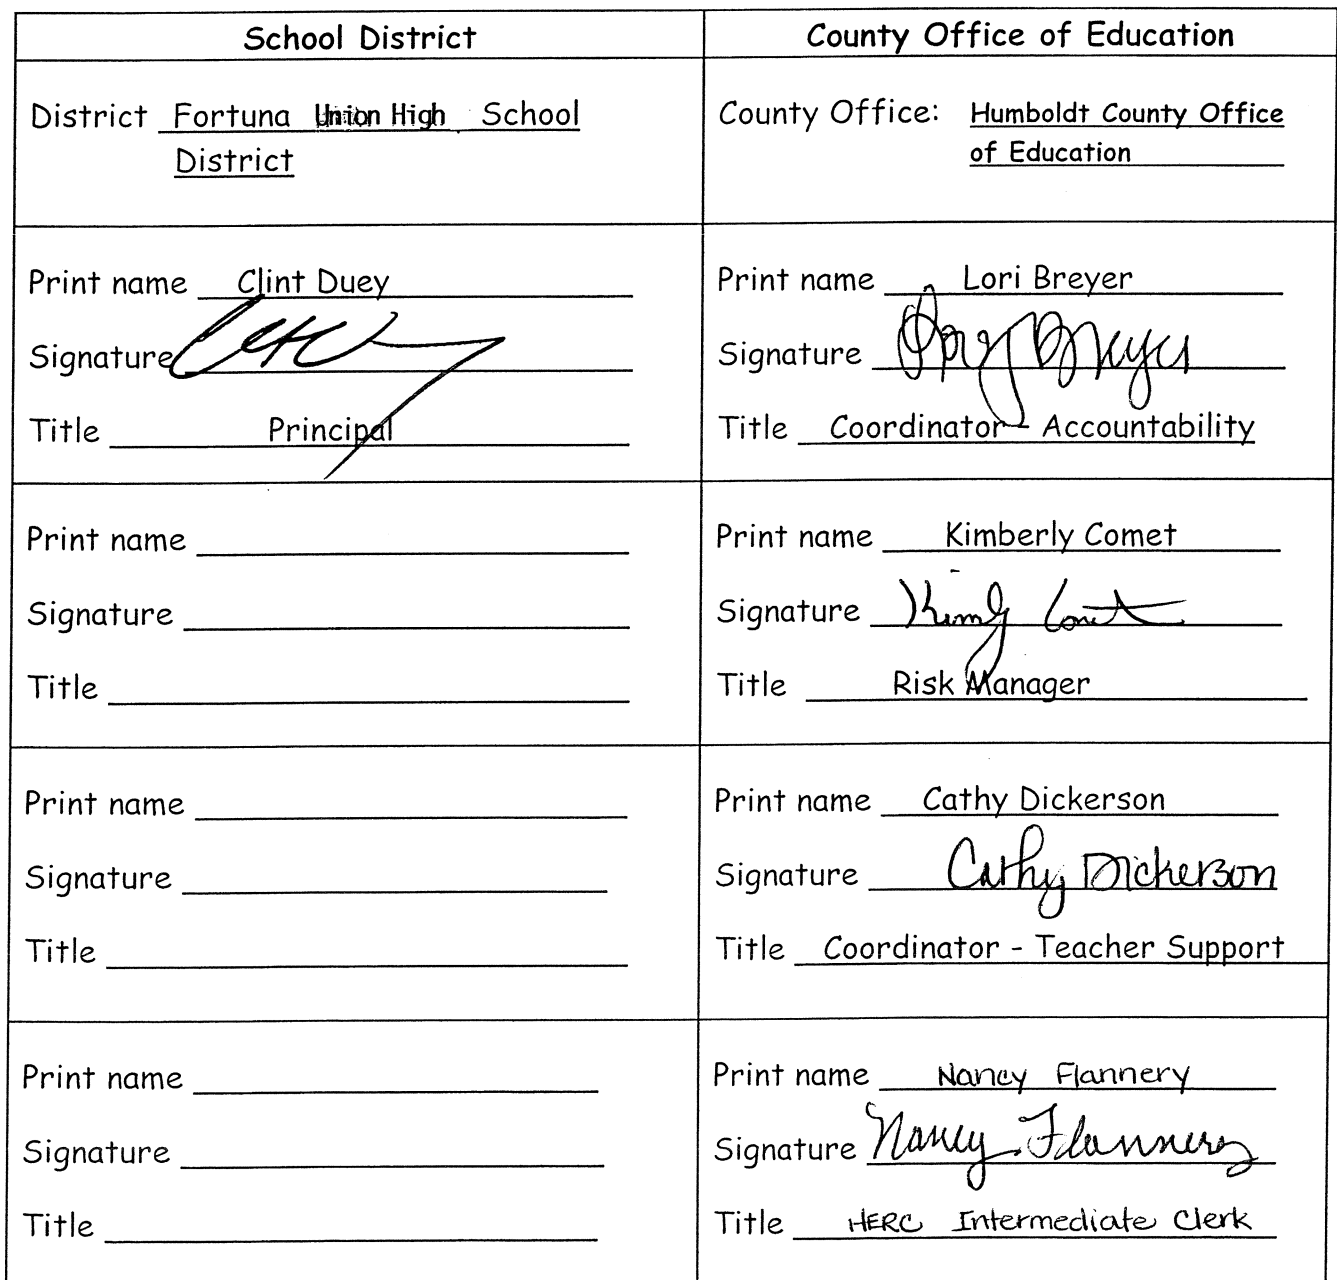 School District
County Office of Education
District Fortuna Union High School
District
County Office: Humboldt County Office
of Education
Print name Clint Duey
Signature
Title Principal
Print name Lori Breyer
Signature Lory Breyer
Title Coordinator - Accountability
Print name
Signature
Title
Print name Kimberly Comet
Signature Kimly Comet
Title Risk Manager
Print name
Signature
Title
Print name Cathy Dickerson
Signature Cathy Dickerson
Title Coordinator - Teacher Support
Print name
Signature
Title
Print name Nancy Flannery
Signature Nancy Flannery
Title HERC Intermediate Clerk